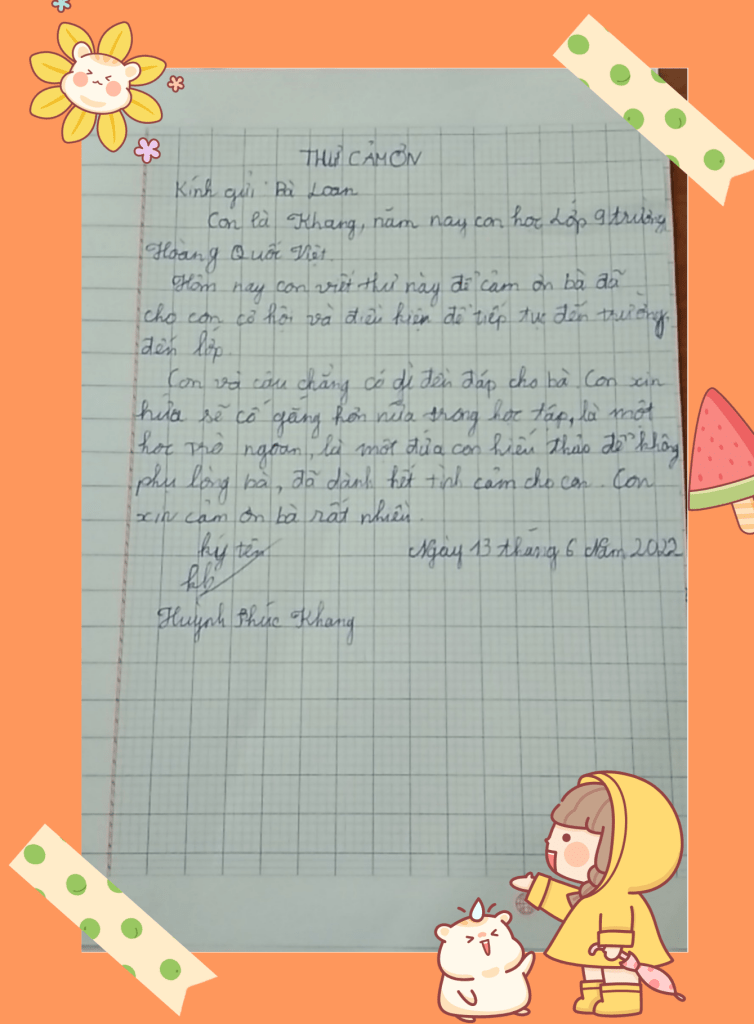 THƯ CẢM ƠN
Kính gửi: Bà Loan
Con là Khang, năm nay con học Lớp 9 trường
Hoàng Quốc Việt.
Hôm nay con viết thư này để cảm ơn bà đã
cho con cơ hội và điều kiện để tiếp tục đến trường,
đến lớp.
Con và cậu chẳng có gì đền đáp cho bà. Con xin
hứa sẽ cố gắng hơn nữa trong học tập, là một
học trò ngoan, là một đứa con hiếu thảo để không
phụ lòng bà, đã dành hết tình cảm cho con. Con
xin cảm ơn bà rất nhiều.
ký tên Ngày 13 tháng 6 Năm 2022
Huỳnh Phúc Khang